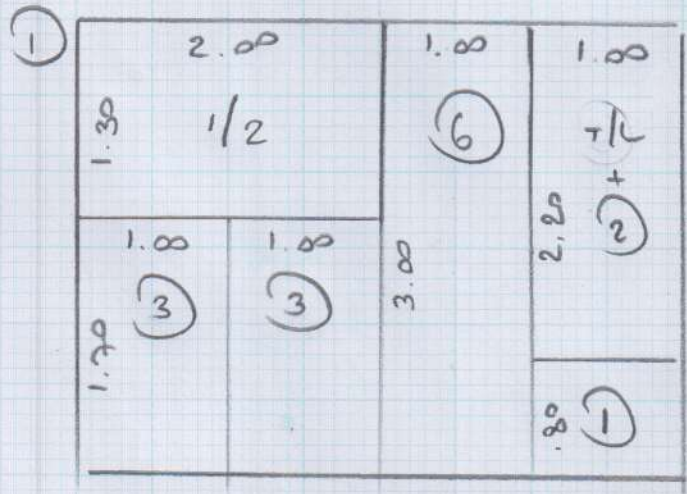 1
2.00
1.30
1/2
1.00
6
1.00
T/L
+
2
2.20
1.00
3
1.70
1.00
3
3.00
.80
1